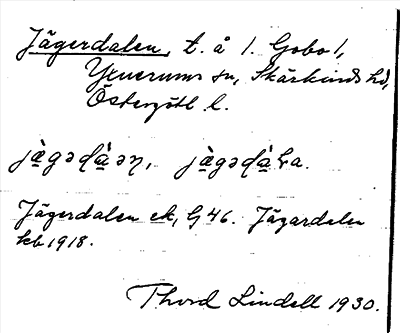 Jägerdalen, t. å 1. Gobo 1,
Yxnerums sn, Skärkinds hd,
Östergötl. l.
jägədàən, jägədàɽa.
Jägerdalen ek, G 46. Jägardalen
kb 1918.
Thord Lindell 1930.